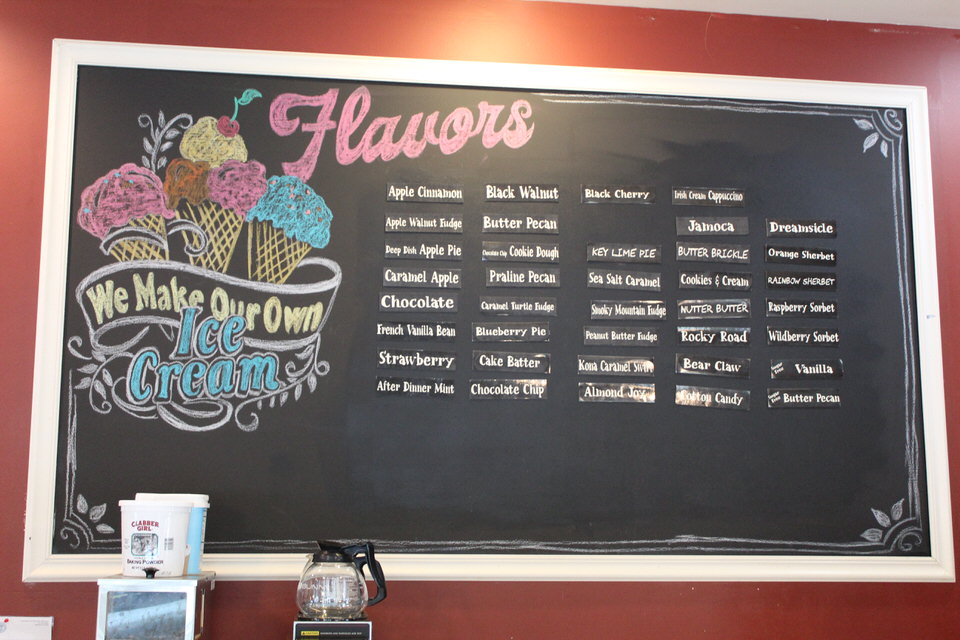 Flavors
We Make Our Own
Ice
Cream
Apple Cinnamon
Apple Walnut Fudge
Deep Dish Apple Pie
Caramel Apple
Chocolate
French Vanilla Bean
Strawberry
After Dinner Mint
Black Walnut
Butter Pecan
Chocolate Chip Cookie Dough
Praline Pecan
Caramel Turtle Fudge
Blueberry Pie
Cake Batter
Chocolate Chip
Black Cherry
KEY LIME PIE
Sea Salt Caramel
Smoky Mountain Fudge
Peanut Butter Fudge
Kona Caramel Swirl
Almond Joy
Irish Cream Cappuccino
Jamoca
BUTTER BRICKLE
Cookies & Cream
NUTTER BUTTER
Rocky Road
Bear Claw
Cotton Candy
Dreamsicle
Orange Sherbet
RAINBOW SHERBET
Raspberry Sorbet
Wildberry Sorbet
Sugar Free Vanilla
Sugar Free Butter Pecan
CLABBER
GIRL
BAKING POWDER
BUNN